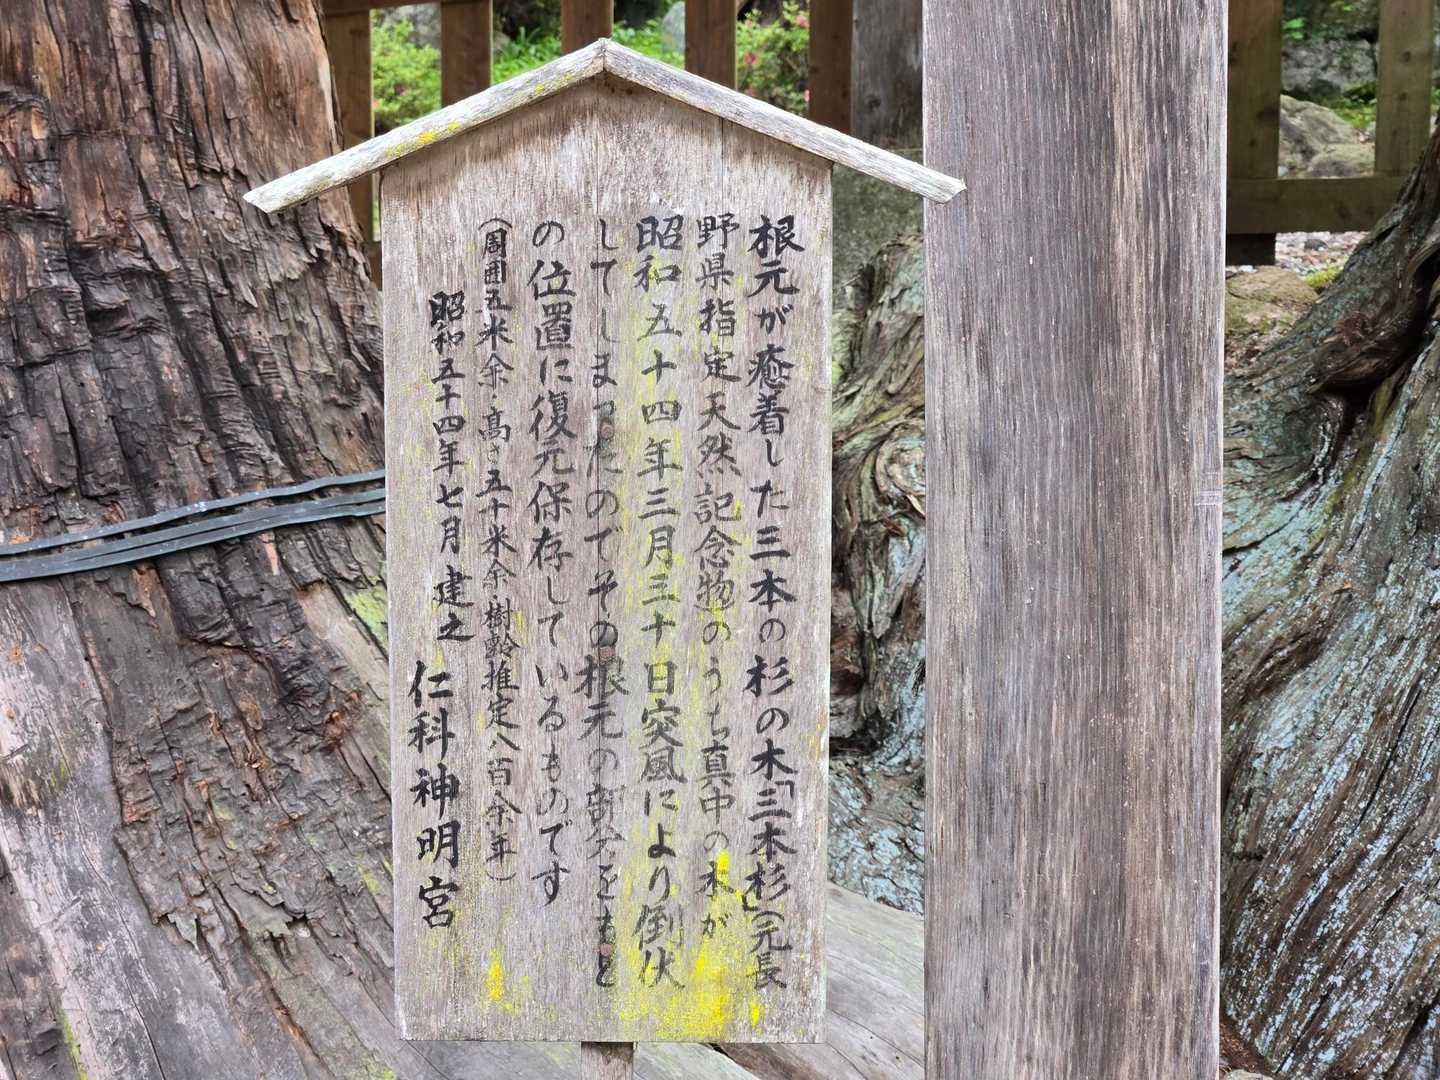 根元が癒着した三本の杉の木「三本杉」(元長
野県指定天然記念物のうち真中の木が
昭和五十四年三月三十日突風により倒伏
してしまったのでその根元の部分をもと
の位置に復元保存しているものです
(周囲五米余・高さ五十米余・樹齢推定八百余年)
昭和五十四年七月 建之 仁科神明宮